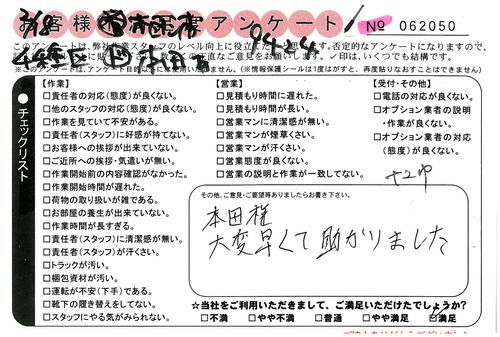 お客様 アンケート
No 062050
2/18
9424
このアンケートは、弊社作業スタッフのレベル向上に役立て
否定的なアンケートになりますので、
直なご意見をお願いします。✓印は、いくつでも結構です。
※このアンケートは、アンケート目的以外に使用いたしません。(※情報保護シールは1度はがすと、再度貼りなおすことはできません)
チェックリスト
【作業】
□責任者の対応(態度)が良くない。
□他のスタッフの対応(態度)が良くない。
□作業を見ていて不安がある。
□責任者(スタッフ)に好感が持てない。
□お客様への挨拶が出来ていない。
□ご近所への挨拶・気遣いが無い。
□作業開始前の内容確認がなかった。
□作業開始時間が遅れた。
□荷物の取り扱いが雑である。
□お部屋の養生が出来ていない。
□作業時間が長すぎる。
□責任者(スタッフ)に清潔感が無い。
□責任者(スタッフ)が汗くさい。
□トラックが汚い。
□梱包資材が汚い。
□運転が不安(下手)である。
□靴下の履き替えをしてない。
□スタッフにやる気がみられない。
【営業】
□見積もり時間に遅れた。
□見積もり時間が長い。
□営業マンに清潔感が無い。
□営業マンが煙草くさい。
□営業マンが汗くさい。
□営業態度が良くない。
□営業の説明と作業が一致してない。
【受付・その他】
□電話の対応が良くない。
□オプション業者の説明
・作業が良くない。
□オプション業者の対応
(態度)が良くない。
その他、ご意見・ご要望等ありましたらお書き下さい。
本田様
大変早くて助かりました
☆当社をご利用いただきまして、ご満足いただけたでしょうか?
□不満 □やや不満 □普通 □やや満足 ☑満足